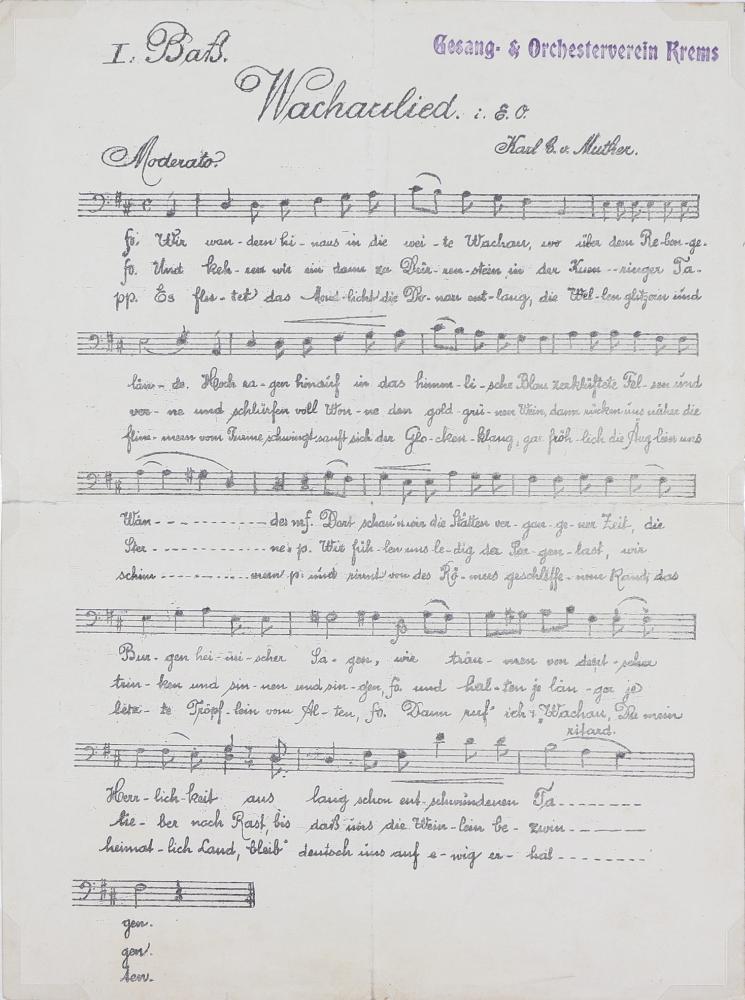 I. Baß.
Gesang- & Orchesterverein Krems
Wachaulied. i. E. O.
Karl E. v. Muther.
Moderato.
fo. Wir wan-dern hi-naus in die wei-te Wachau, wo über dem Re-ben-ge-
fo. Und keh-ren wir ein dann zu Dür-ren-stein, in der Kuen--ringer Ta-
pp. Es flu-tet das Mond-licht die Do-nau ent-lang, die Wel-len glitzern und
län-de. Hoch ra-gen hinauf in das himm-li-sche Blau zerklüftete Fel-sen und
ver-ne und schlürfen voll Won-ne den gold-grü-nen Wein, dann rücken uns näher die
flim-mern vom Turme schwingt sanft sich der Glo-cken-klang, gar fröh-lich die Äug-lein uns
Wän----------de. mf. Dort schau'n wir die Stätten ver-gan-ge-ner Zeit, die
Ster----------ne. p. Wir füh-len uns le-dig der Sor-gen-last, wir
schim----------mern p. und rinnt von des Rö-mers geschliffe-nem Rand, das
Bur-gen hei-mi-scher Sa-gen, wie träu-men von deut-scher
trin-ken und sin-nen und sin-gen, fo. und hal-ten je län-ger je
letz-te Tröpf-lein vom Al-ten, fo. Dann ruf' ich: "Wachau, Du mein
ritard.
Herr-lich-keit aus lang schon ent-schwundenen Ta--------
lie-ber noch Rast, bis daß uns die Wein-lein be-zwin-------
heimat-lich Land, bleib" deutsch uns auf e-wig er-hal-------
gen.
gen.
ten.